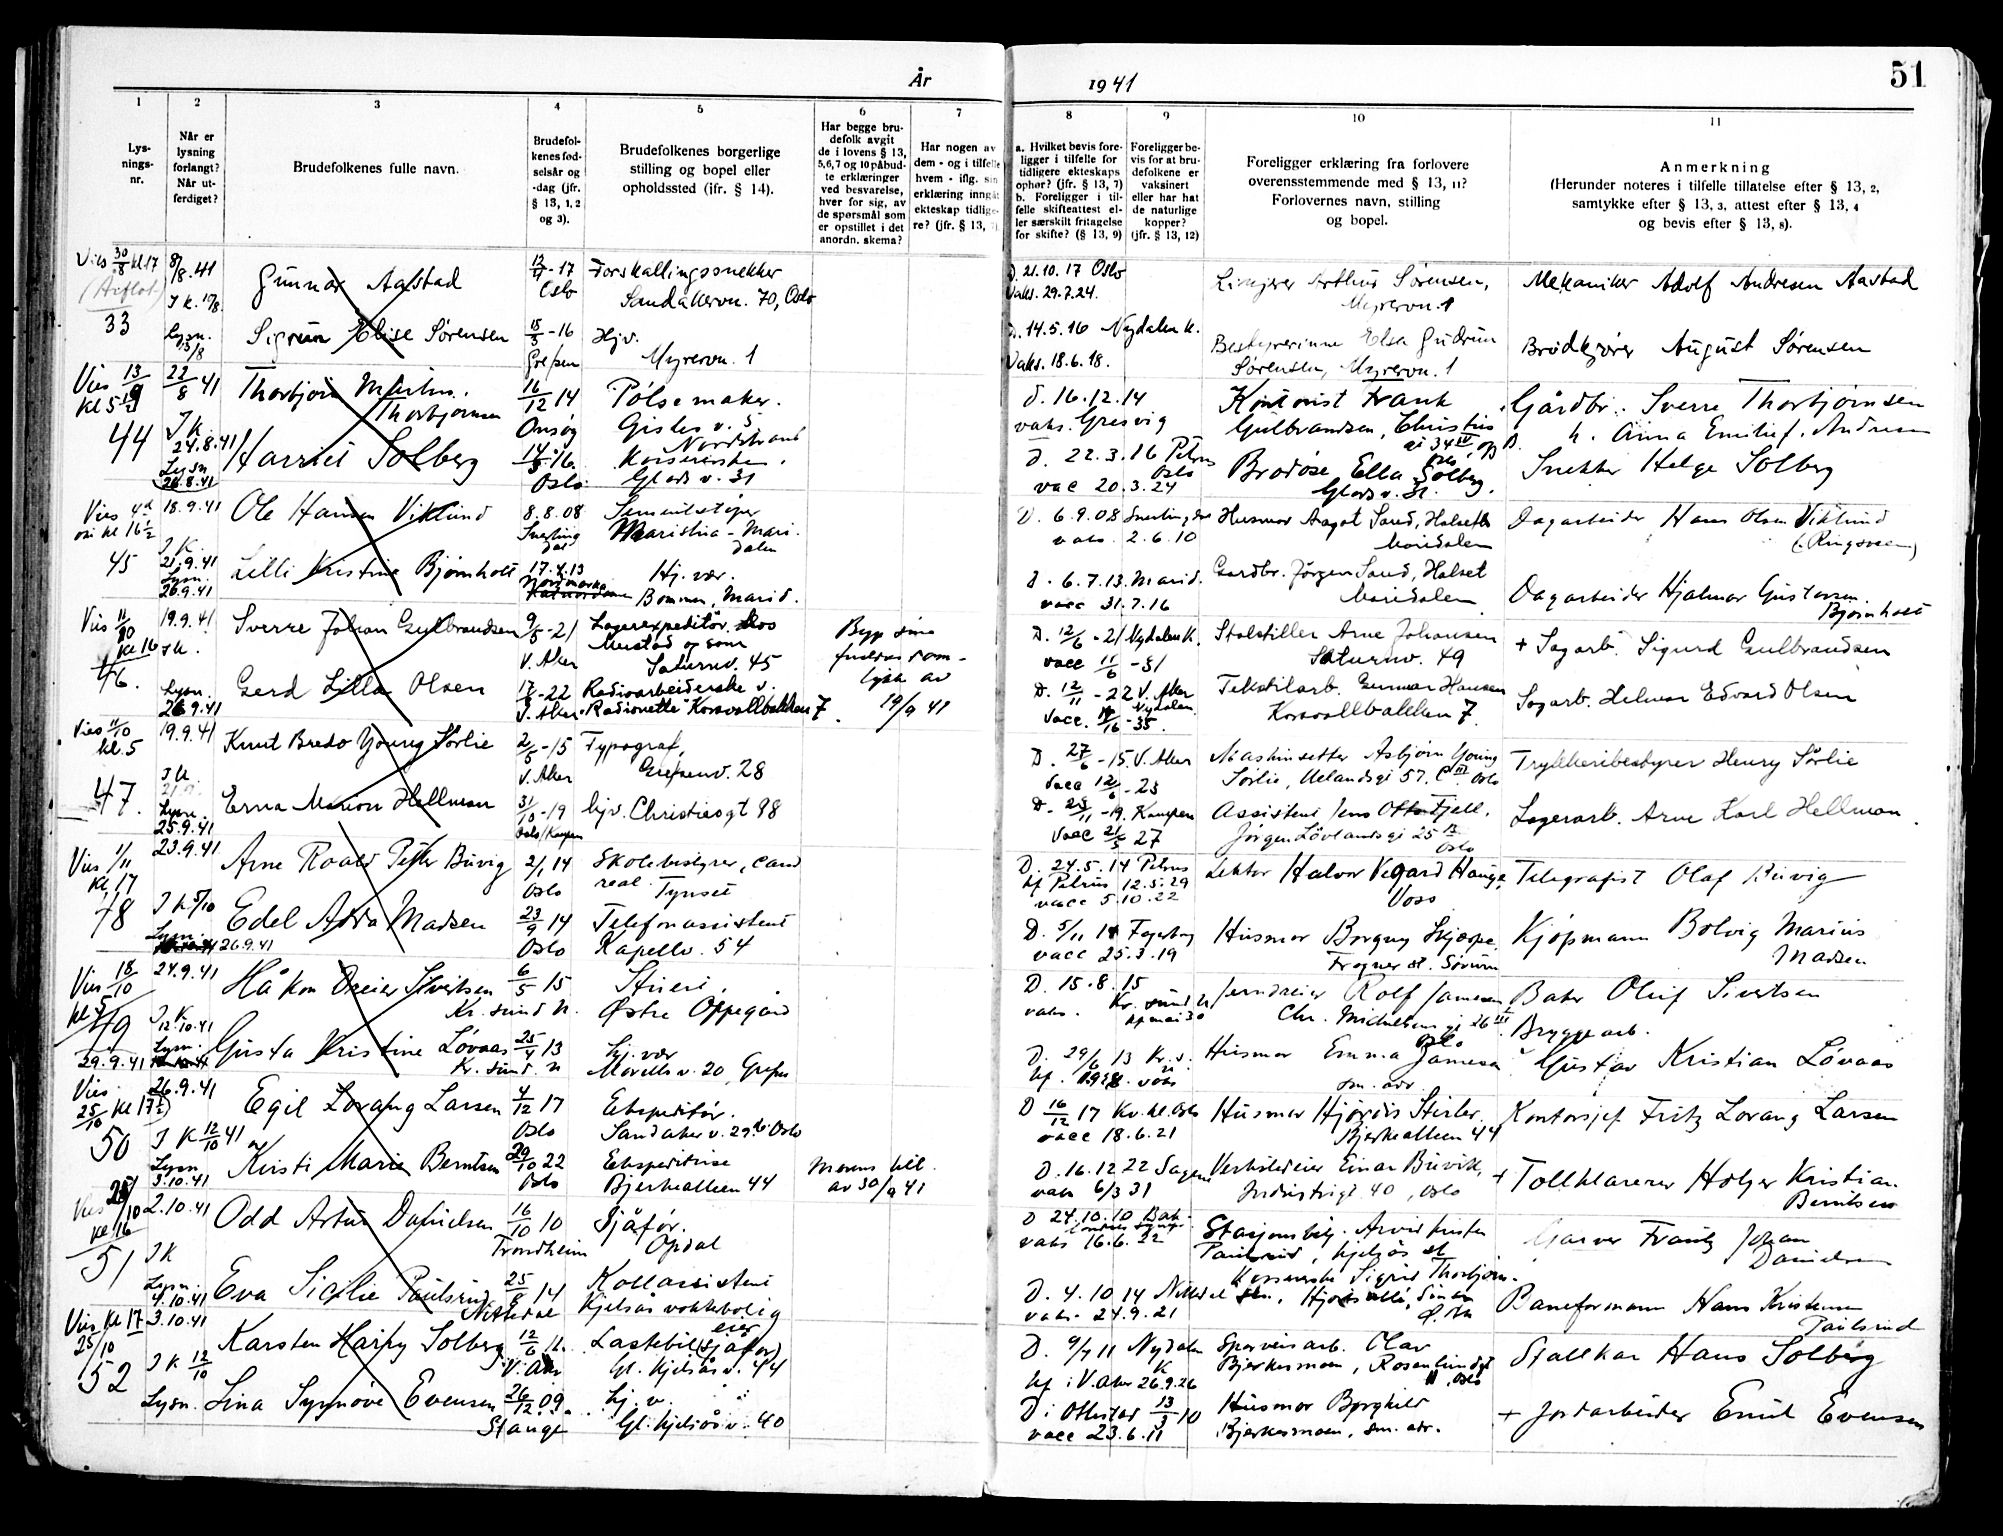 År 1941
51
1 2 3 4 5 6 7 8 9 10 11
Lys-
nings-
nr.
Når er
lysning
forlangt?
Når ut-
ferdiget?
Brudefolkenes fulle navn.
Brudefol-
kenes fød-
selsår og
-dag (jfr.
§ 13, 1, 2
og 3).
Brudefolkenes borgerlige
stilling og bopel eller
opholdssted (jfr. § 14).
Har begge bru-
defolk avgit
de i lovens § 13,
5,6,7 og 10 påbud-
te erklæringer
ved besvarelse,
hver for sig, av
de spørsmål som
er opstillet i det
anordn. skema?
Har nogen av
dem - og i tilfelle
hvem - iflg. sin
erklæring inngåt
ekteskap tidlige-
re? (jfr. § 13,
a. Hvilket bevis fore-
ligger i tilfelle for
tidligere ekteskaps
ophør? (jfr. § 13, 7)
b. Foreligger i til-
felle skifteattest el-
ler særskilt fritagelse
for skifte? (§ 13, 9)
Foreligger be-
vis for at bru-
defolkene er
vaksinert
eller har hat
de naturlige
kopper?
(jfr. § 13, 12)
Foreligger erklæring fra forlovere
overensstemmende med § 13, 11?
Forlovernes navn, stilling
og bopel.
Anmerkning
(Herunder noteres i tilfelle tillatelse efter § 13, 2,
samtykke efter § 13, 3, attest efter § 13, 4
og bevis efter § 13, 8).
Vies 30/8 kl 17
33
8/8.41
Gunnar Aastad
-17
Oslo
Forskallingssnekker
Sandakervn. 70, Oslo
D. 21.10.17 Oslo
Vaks. 29.7.24.
Arthur Sørensen,
Myrervn. 1
Mekaniker Adolf Andresen Aastad
Lysn.
Sigrun Elise Sørensen
-16
Grefsen
Hjv.
Myrervn. 1
D. 14.5.16 Nydalen k.
Vaks. 18.6.18.
Bestyrerinne Elsa Gudrun
Sørensen, Myrervn. 1
Brødkjører August Sørensen
Vies 13/9
44
22/8 41
Thorbjørn Martin
Thorbjørnsen
16/12 14
Onsøy
Pølsemaker.
Gisles v. 5
Nordstrand
d. 16.12.14
vaks. Gresvig
Kontorist Frank
Gulbrandsen, Christies
gt 34 IV, opp B.
Oslo
Gårdbr. Sverre Thorbjørnsen
J k.
24.8.41
Lysn
26.8.41
Harriet Solberg
16.
Oslo
Glads v. 31
d. 22.3.16 Petrus
Oslo
vac 20.3.24
Brodøse Ella Solberg,
Glads v. 31.
Snekker Helge Solberg
45
18.9.41
Ole Hansen Viklund
8.8.08
Maristua - Mari-
dalen
D. 6.9.08
vaks. 2.6.10
Husmor Aagot Sand, Halset
Maridalen
Dagarbeider Hans Olsen Viklund
J K.
21.9.41
Lysn.
26.9.41
Lilli Kristine Bjørnholt
17.4.13
Nordmarka
Hj. vær.
Bommen, Marid.
D. 6.7.13. Marid.
vacc 31.7.16
Gardbr. Jørgen Sand, Halset
Maridalen
Dagarbeider Hjalmar Gustavsen
Bjørnholt
Vies 11/10
kl 16
46.
19.9.41
Sverre Johan Gulbrandsen
9/5-21
V. Aker
Lagerexpeditør, hos
Mustad og sønn
Saturnv. 45
D. 12/6 -21 Nydalen K.
vacc 11/6 -31
Stolstiller Arne Johansen
Saturnv. 49
+ Sagarb. Sigurd Gulbrandsen
Lysn.
26.9.41
Gerd Lilla Olsen
-22
V. Aker
Radioarbeiderske v.
"Radionette" Korsvollbakken 7
19/9 41
D. 12/11 -22 V. Aker
Nydalen
Vacc.
-35.
Tekstilarb. Gunnar Hansen
Korsvollbakken 7
Sagarb. Helmar Edvard Olsen
Vies 11/10
kl. 5
47.
19.9.41
Knut Bredo Young Sørlie
2/5-15
V. Aker
Typograf,
Grefsenv. 28
D. 27/6 -15. V. Aker
Vacc 12/6 -23
Maskinsetter Asbjørn Young
Sørlie, Uelandsgt 57. C III Oslo
Trykkeribestyrer Henry Sørlie
25.9.41
Erna Marion Hellman
31/10 -19
Oslo/Kampen
hjv. Christiesgt 98
-19. Kampen
Vacc 21/5 27
Assistent Jens Otto Fjell,
Jørgen Løvlandsgt 25
Oslo
Lagerarb. Arne Karl Hellman.
Vies 1/11
kl, 17
48
23.9.41
Arne Roald Petter Buvig
2/1 14
Oslo
Skolebestyrer, cand
real. Tynset
D. 24.5.14 Petrus
kf Petrus 12.5.29
vacc 5.10.22
Lektor Halvor Vegard Hauge,
Voss
Telegrafist Olaf Buvig
J k 5/10
Lysn.
26.9.41
Edel Asra Madsen
23/9 14
Oslo
Telefonassistent
Kapellv. 54
D. 5/11 14 Fagerborg
vacc 25.3.19
Husmor Borgny Skjæpe,
Frogner st. Sørum
Kjøpmann Bolvig Marius
Madsen
Vies 18/10
kl 5
49
29.9.41
24.9.41
Håkon Dreier Sivertsen
Kr. sund N.
6/5 15
Stueri.
Østre Oppegård
D. 15.8.15
Kr. sund N
vaks.
kf mai 30
Jerndreier Rolf Jamesen
Chr. Michelsens gt 26 III
Oslo
Baker Oluf Sivertsen
J K
12.10.41
Lysn.
Gusta Kristine Løvaas
Kr. sund. N
25/4 13
hj. vær
Morells v. 20, Grefsen
D. 29/6 13 Kr. s.
kf. 1928. vaks
Husmor Emma Jamesen
sm. adr.
Bryggearb.
Gustav Kristian Løvaas
Vies
25/10 kl 17½
50
26.9.41
Egil Lorang Larsen
4/12 17
Oslo
Ekspeditør.
Sandaker v. 29 b Oslo
D 16/12 17
vacc 18.6.21
Husmor Hjørdis Stirler,
Bjerkealleen 44
Kontorsjef Fritz Lorang Larsen
J K 12/10 41
Lysn
3.10.41
Kirsti Marie Berntsen
29/10 22
Oslo
Ekspeditrise
Bjerkealleen 44
Morens till.
av 30/9 41
D. 16.12.22 Sagene
vaks 6/3 31
Verksteder Einar Buvik,
Industrigt 40, Oslo
+ Tollklarerer Holger Kristian
Berntsen
Vies
kl 16
51
2.10.41
Odd Artur Danielsen
16/10 10
Trondheim
Sjåfør.
Opdal
D 24.10.10 Bak-
vaks 16.6.22
Stasjonsbetj. Arvid
Paulsrud, Kjelsås st
Garver Frantz Johan
Danielsen
J K
Lysn.
4.10.41
Eva Sicilie Paulsrud
25/8 14
Nittedal
Kollassistent
Kjelsås vokterbolig
D. 4.10.14 Nittedal
vaks. 24.9.21
Sigrid Thorbjørn-
sen,
Baneformann Hans Kristensen
Paulsrud
Vies kl 17
25/10
52
3.10.41
Karsten Harry Solberg
12/6 11.
V. Aker
Lastebileier (sjåfør)
Gl. Kjelsås v. 44
D. 9/7 11 Nydalen
K
kf i V. Aker 26.9.26
Sporveisarb. Olav
Bjerkesmoen, Rosenlundgt
11, Oslo
Stallkar Hans Solberg
J K 12/10
Lysn.
Lina Synnøve Evensen
26/12 09.
Stange
hj. v.
Gl. Kjelsås v. 40
D i Ottestad 13/3 10
vacc 23.6.11
Husmor Borghild
Bjerkesmoen, sm. adr.
+ Jordarbeider Emil Evensen